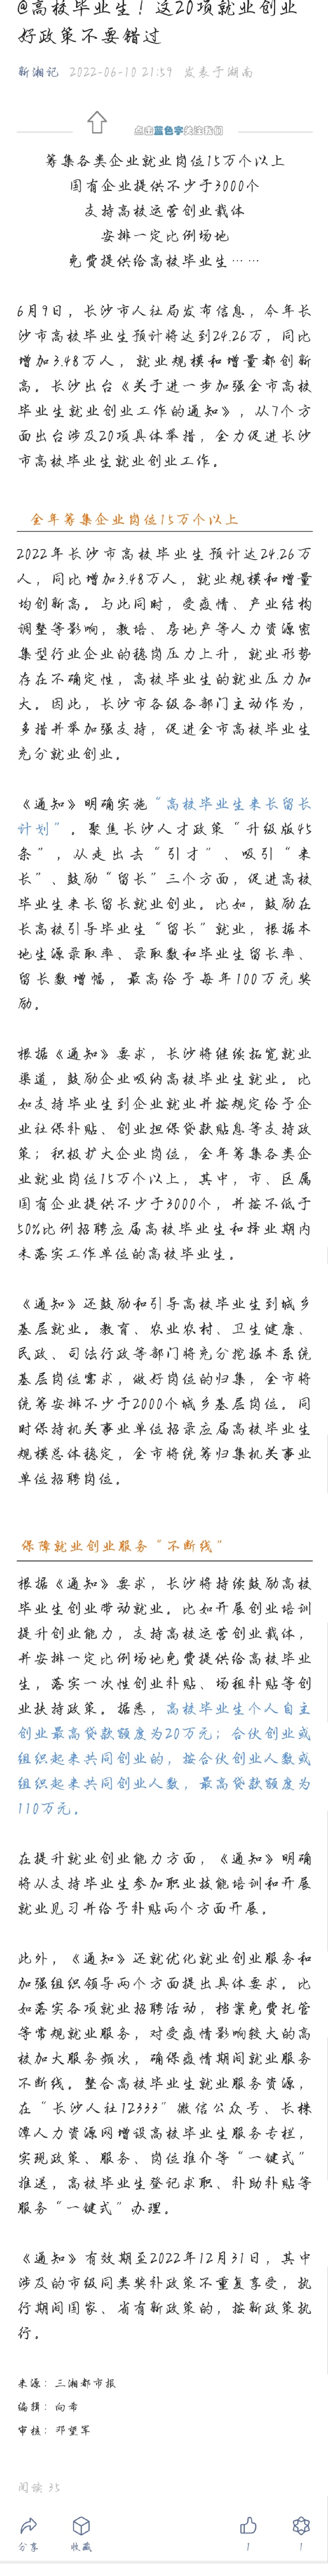 @高校毕业生！这20项就业创业
好政策不要错过
新湘记 2022-06-10 21:59 发表于湖南
点击蓝色字关注我们
筹集各类企业就业岗位15万个以上
国有企业提供不少于3000个
支持高校运营创业载体
安排一定比例场地
免费提供给高校毕业生……
6月9日，长沙市人社局发布信息，今年长
沙市高校毕业生预计将达到24.26万，同比
增加3.48万人，就业规模和增量都创新
高。长沙出台《关于进一步加强全市高校
毕业生就业创业工作的通知》，从7个方
面出台涉及20项具体举措，全力促进长沙
市高校毕业生就业创业工作。
全年筹集企业岗位15万个以上
2022年长沙市高校毕业生预计达24.26万
人，同比增加3.48万人，就业规模和增量
均创新高。与此同时，受疫情、产业结构
调整等影响，教培、房地产等人力资源密
集型行业企业的稳岗压力上升，就业形势
存在不确定性，高校毕业生的就业压力加
大。因此，长沙市各级各部门主动作为，
多措并举加强支持，促进全市高校毕业生
充分就业创业。
《通知》明确实施“高校毕业生来长留长
计划”。聚焦长沙人才政策“升级版45
条”，从走出去“引才”、吸引“来
长”、鼓励“留长”三个方面，促进高校
毕业生来长留长就业创业。比如，鼓励在
长高校引导毕业生“留长”就业，根据本
地生源录取率、录取数和毕业生留长率、
留长数增幅，最高给予每年100万元奖
励。
根据《通知》要求，长沙将继续拓宽就业
渠道，鼓励企业吸纳高校毕业生就业。比
如支持毕业生到企业就业并按规定给予企
业社保补贴、创业担保贷款贴息等支持政
策；积极扩大企业岗位，全年筹集各类企
业就业岗位15万个以上，其中，市、区属
国有企业提供不少于3000个，并按不低于
50%比例招聘应届高校毕业生和择业期内
未落实工作单位的高校毕业生。
《通知》还鼓励和引导高校毕业生到城乡
基层就业。教育、农业农村、卫生健康、
民政、司法行政等部门将充分挖掘本系统
基层岗位需求，做好岗位的归集，全市将
统筹安排不少于2000个城乡基层岗位。同
时保持机关事业单位招录应届高校毕业生
规模总体稳定，全市将统筹归集机关事业
单位招聘岗位。
保障就业创业服务“不断线”
根据《通知》要求，长沙将持续鼓励高校
毕业生创业带动就业。比如开展创业培训
提升创业能力，支持高校运营创业载体，
并安排一定比例场地免费提供给高校毕业
生，落实一次性创业补贴、场租补贴等创
业扶持政策。据悉，高校毕业生个人自主
创业最高贷款额度为20万元；合伙创业或
组织起来共同创业的，按合伙创业人数或
组织起来共同创业人数，最高贷款额度为
110万元。
在提升就业创业能力方面，《通知》明确
将从支持毕业生参加职业技能培训和开展
就业见习并给予补贴两个方面开展。
此外，《通知》还就优化就业创业服务和
加强组织领导两个方面提出具体要求。比
如落实各项就业招聘活动，档案免费托管
等常规就业服务，对受疫情影响较大的高
校加大服务频次，确保疫情期间就业服务
不断线。整合高校毕业生就业服务资源，
在“长沙人社12333”微信公众号、长株
潭人力资源网增设高校毕业生服务专栏，
实现政策、服务、岗位推介等“一键式”
推送，高校毕业生登记求职、补助补贴等
服务“一键式”办理。
《通知》有效期至2022年12月31日，其中
涉及的市级同类奖补政策不重复享受，执
行期间国家、省有新政策的，按新政策执
行。
来源：三湘都市报
编辑：向希
审核：邓望军
阅读 35
分享 收藏 1 1